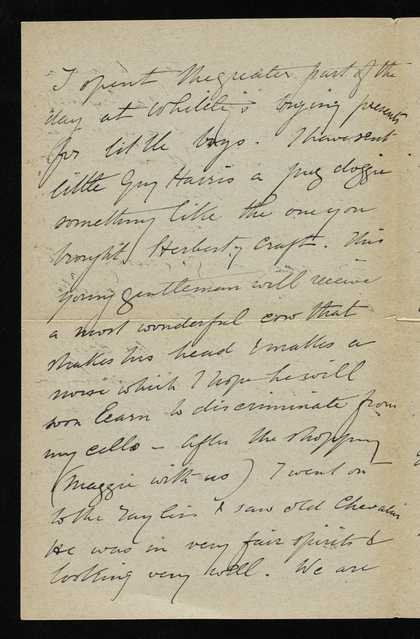 I spent the greater part of the
day at Whiteley's buying presents
for little boys. I have sent
little Guy Harris a pug doggie
something like the one you
brought Herbert Craft. This
young gentleman will receive
a most wonderful cow that
shakes his head & makes a
noise which I hope he will
soon learn to discriminate from
my cello – after the shopping
(Maggie with us) I went on
to the & saw old Chevalier
He was in very fair spirits &
looking very well. We are